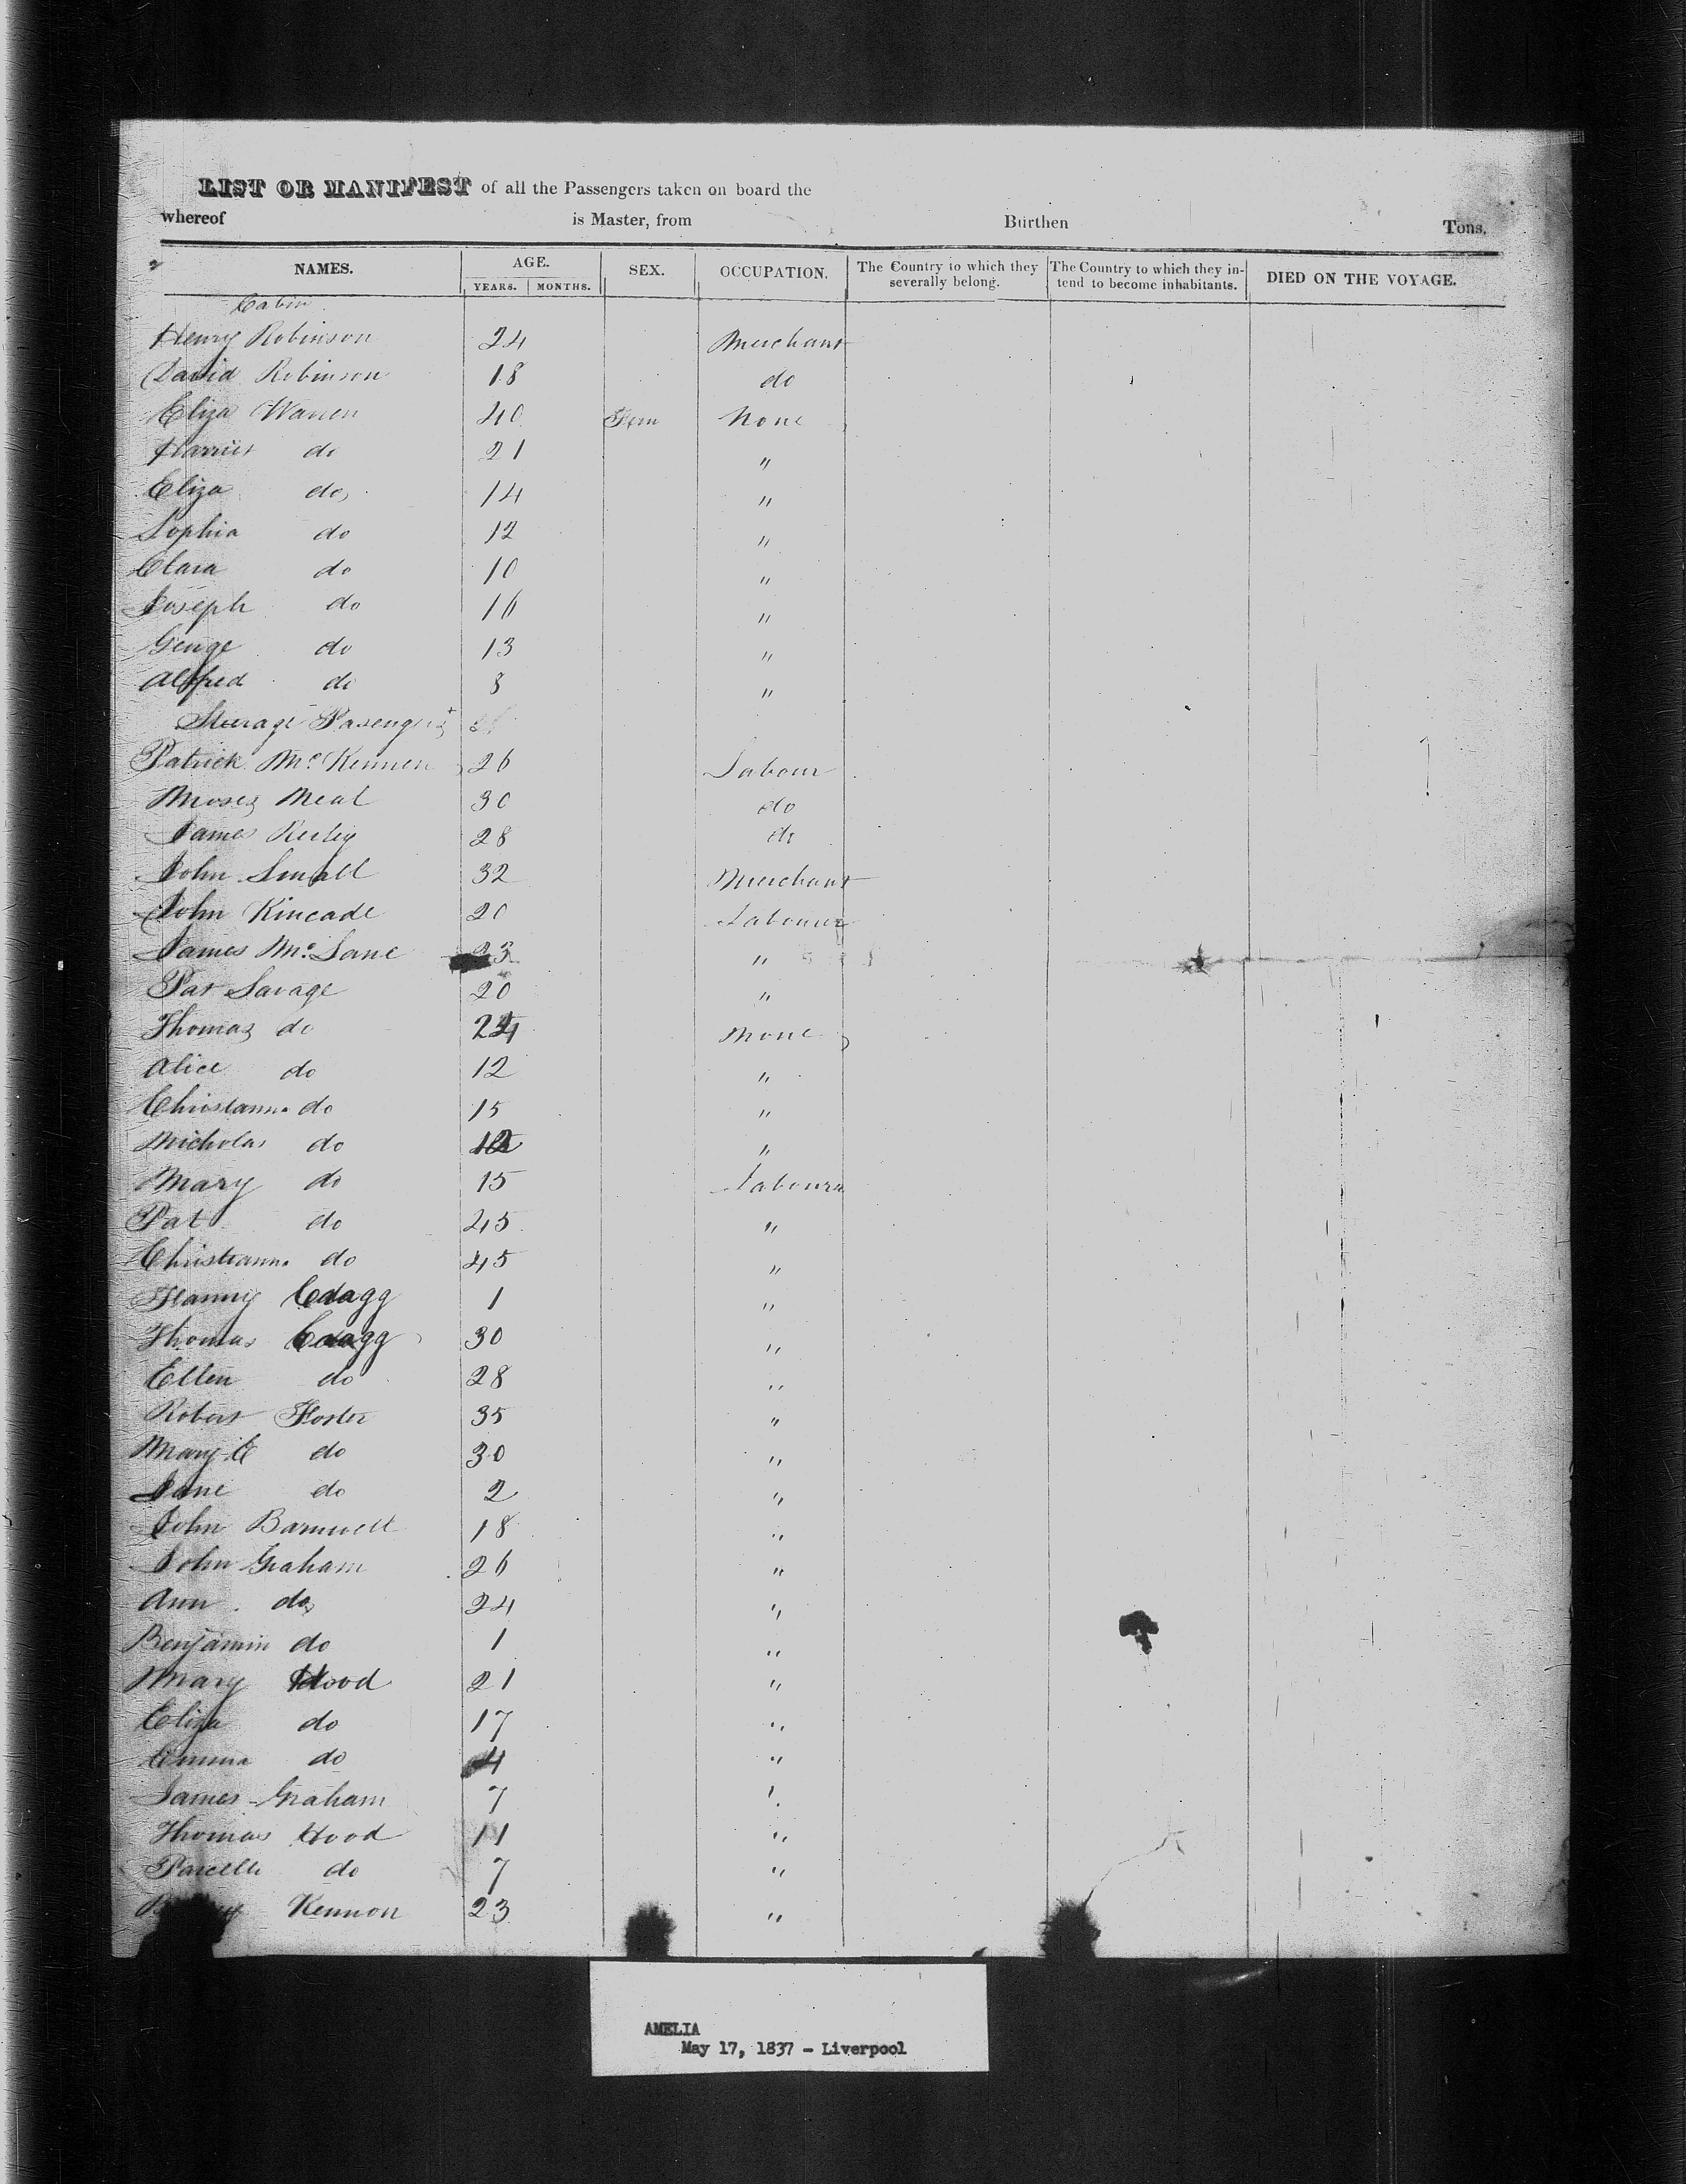 LIST OR MANIFEST of all the Passengers taken on board the
whereof is Master, from Burthen Tons,
NAMES. AGE. YEARS. MONTHS. SEX. OCCUPATION. The Country to which they severally belong. The Country to which they intend to become inhabitants. DIED ON THE VOYAGE.
Cabin
Henry Robinson 24 Merchant
David Robinson 18 do
Eliza Warren 40 Fem None
Harriet do 21 "
Eliza do 14 "
Sophia do 12 "
Clara do 10 "
Joseph do 16 "
George do 13 "
Alfred do 8 "
Steerage Pasengers
Patrick Mc Kennen 26 Labour
Moses Neal 30 do
James Reiley 28 do
John Small 32 Merchant
John Kincade 20 Labourer
James Mc Lane 23 "
Pat Savage 20 "
Thomas do 24 None
Alice do 12 "
Christanna do 15 "
Nicholas do 12 "
Mary do 15 Labourer
Pat do 45 "
Christianna do 45 "
Fanny Cragg 1 "
Thomas Cragg 30 "
Ellen do 28 "
Robert Foster 35 "
Mary E do 30 "
Jane do 2 "
John Barnwell 18 "
John Graham 26 "
Ann do 24 "
Benjamin do 1 "
Mary Hood 21 "
Eliza do 17 "
Emma do 4 "
James Graham 7 "
Thomas Hood 11 "
do 7 "
Kennon 23 "
AMELIA
May 17, 1837 - Liverpool